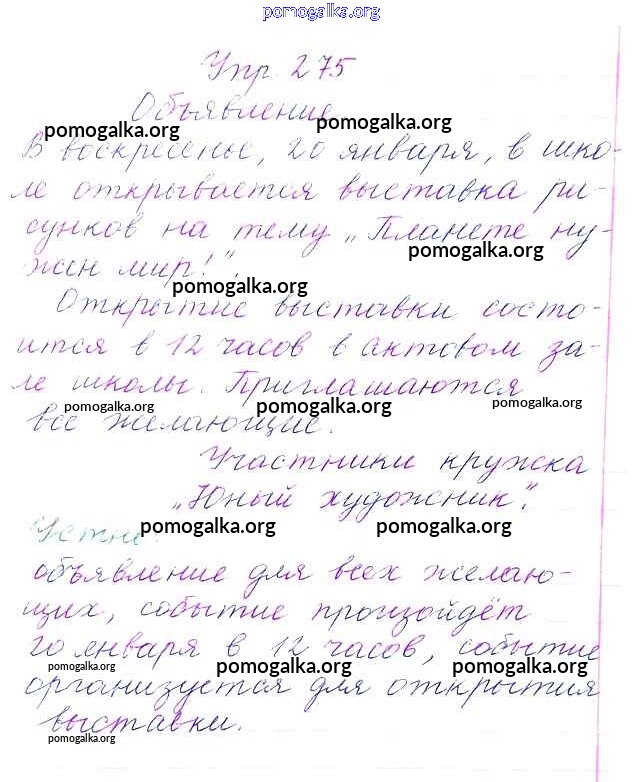 pomogalka.org
Упр. 275
Объявление
pomogalka.org pomogalka.org
В воскресенье, 20 января, в шко-
ле открывается выставка ри-
сунков на тему „Планете ну-
pomogalka.org
жен мир!".
pomogalka.org
Открытие выставки состо-
ится в 12 часов в актовом за-
ле школы. Приглашаются
pomogalka.org pomogalka.org pomogalka.org
все желающие.
Участники кружка
„Юный художник".
Устно.
pomogalka.org pomogalka.org
объявление для всех желаю-
щих, событие произойдёт
20 января в 12 часов, событие
pomogalka.org pomogalka.org pomogalka.org
организуется для открытия
выставки.
pomogalka.org